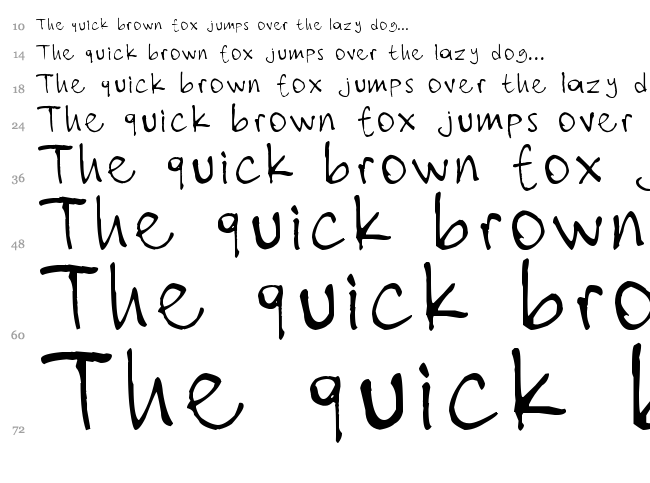 10 The quick brown fox jumps over the lazy dog...
14 The quick brown fox jumps over the lazy dog...
18 The quick brown fox jumps over the lazy d
24 The quick brown fox jumps over
36 The quick brown fox
48 The quick brown
60 The quick bro
72 The quick